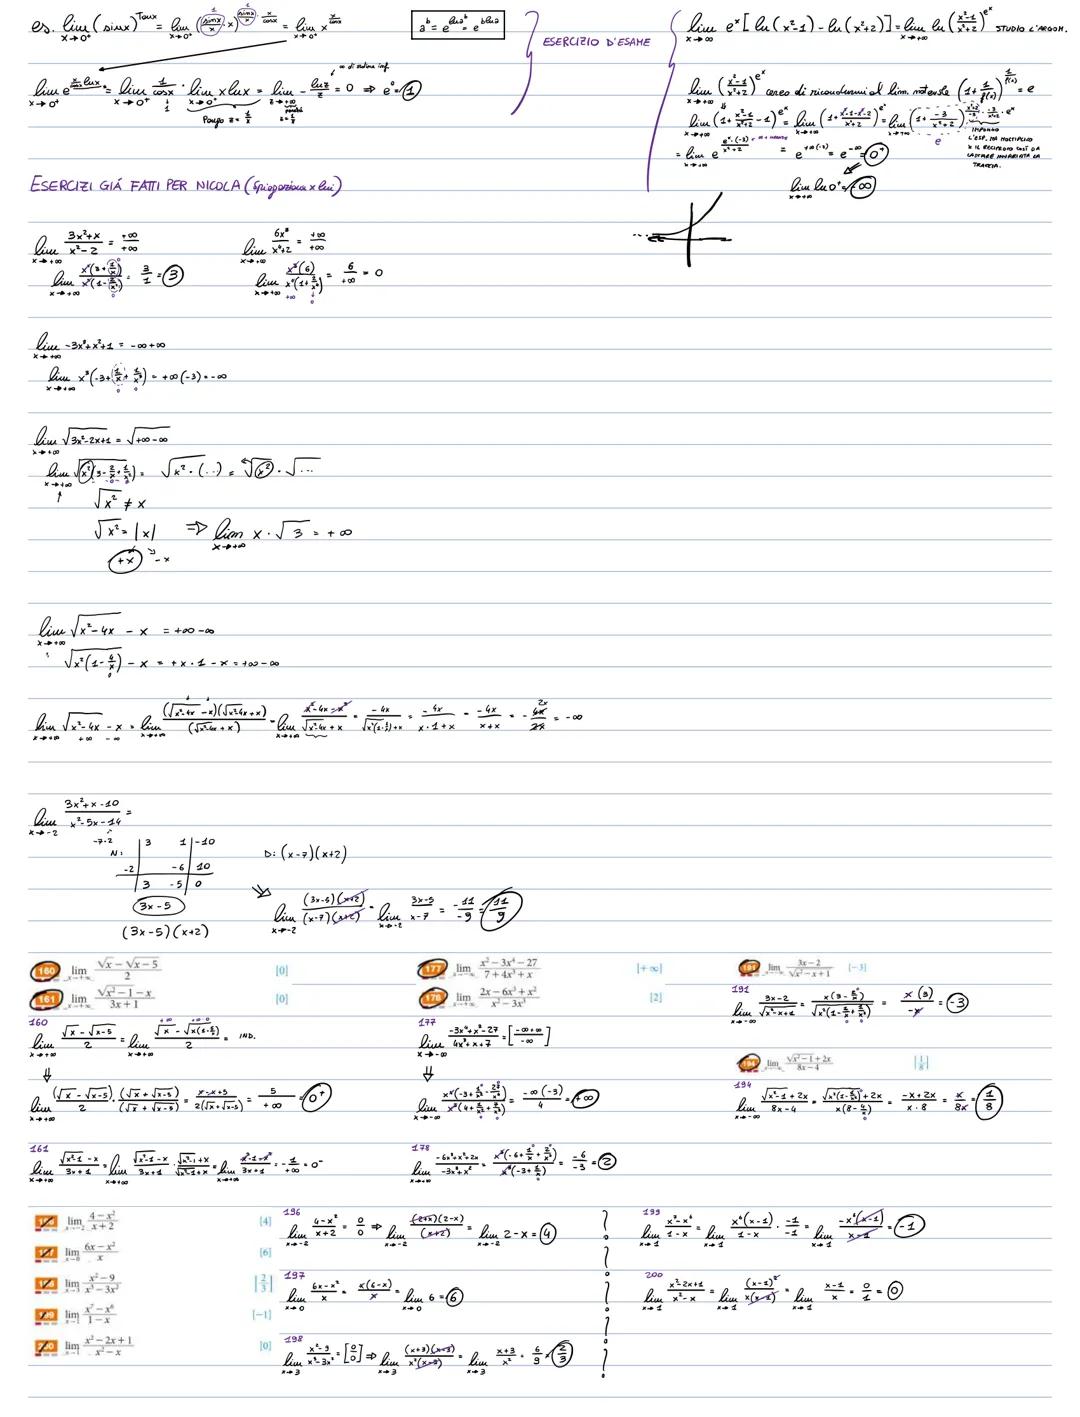 es. lim x→0⁺ (sinx)^tanx = lim x→0⁺ (sinx/x · x)^(sinx/x · x/cosx) = lim x→0⁺ x^(x/cosx)
a^b = e^(ln a^b) = e^(b ln a)
∞ di ordine inf.
lim x→0⁺ e^(x/cosx lnx) = lim x→0⁺ 1/cosx · lim x→0⁺ x lnx = lim z→+∞ - lnz/z = 0 ⇒ e⁰ = 1
Pongo z = 1/x
perché z = 1/x
ESERCIZIO D'ESAME
lim x→∞ e^x [ln(x²-1) - ln(x²+2)] = lim x→+∞ ln((x²-1)/(x²+2))^(e^x) STUDIO L'ARGOM.
lim x→+∞ ((x²-1)/(x²+2))^(e^x) cerco di ricondurmi al lim. notevole (1 + 1/f(x))^f(x) = e
lim x→+∞ (1 + (x²-1)/(x²+2) - 1)^(e^x) = lim x→+∞ (1 + (x²-1-x²-2)/(x²+2))^(e^x) = lim x→+∞ (1 + -3/(x²+2))^((x²+2)/-3 · -3/(x²+2) · e^x)
IMPONGO L'ESP. MA MOLTIPLICO X IL RECIPROCO COSÌ DA LASCIARE INVARIATA LA TRACCIA.
= lim x→+∞ e^(e^x·(-3)/(x²+2)) = e^(+∞(-3)) = e^(-∞) = 0⁺
lim x→+∞ ln 0⁺ = -∞
ESERCIZI GIÁ FATTI PER NICOLA (spiegazione x lui)
lim x→+∞ (3x²+x)/(x²-2) = +∞/+∞
lim x→+∞ x²(3+1/x)/x²(1-2/x²) = 3/1 = 3
lim x→+∞ 6x³/(x⁴+2) = +∞/+∞
lim x→+∞ x³(6)/x⁴(1+2/x⁴) = 6/+∞ = 0
lim x→+∞ -3x³+x²+1 = -∞+∞
lim x→+∞ x³(-3+1/x+1/x³) = +∞(-3) = -∞
lim x→+∞ √(3x²-2x+1) = √(+∞-∞)
lim x→+∞ √(x²(3-2/x+1/x²)) = √(x²·(..)) = √(x²) · √...
√x² ≠ x
√x² = |x| ⇒ lim x→+∞ x·√3 = +∞
+x -x
lim x→+∞ √(x²-4x) - x = +∞-∞
√(x²(1-4/x)) - x = +x·1-x = +∞-∞
lim x→+∞ √(x²-4x) - x = lim x→+∞ (√(x²-4x) -x)(√(x²-4x)+x)/(√(x²-4x)+x) = lim x→+∞ (x²-4x-x²)/(√(x²-4x)+x) = -4x/(√(x²(1-4/x))+x) = -4x/(x·1+x) = -4x/(x+x) = -4x/2x = -∞
lim x→-2 (3x²+x-10)/(x²-5x-14) =
-7·2
N: 3 1 -10
-2 -6 10
3 -5 0
D: (x-7)(x+2)
3x-5
(3x-5)(x+2)
lim x→-2 (3x-5)(x+2)/(x-7)(x+2) = lim x→-2 (3x-5)/(x-7) = -11/-9 = 11/9
160 lim x→+∞ (√x - √(x-5))/2 [0]
161 lim x→+∞ (√(x²-1) - x)/(3x+1) [0]
177 lim x→-∞ (x²-3x⁴-27)/(7+4x³+x) [+∞]
178 lim x→-∞ (2x-6x³+x²)/(x²-3x³) [2]
191 lim x→-∞ (3x-2)/√(x²-x+1) [-3]
191
lim x→-∞ (3x-2)/√(x²-x+1) = x(3-2/x)/√(x²(1-1/x+1/x²)) = x(3)/-x = -3
160
lim x→+∞ (√x - √(x-5))/2 = lim x→+∞ (√x - √(x(1-5/x)))/2 = IND.
lim x→+∞ (√x - √(x-5))/2 · (√x + √(x-5))/(√x + √(x-5)) = (x-x+5)/2(√x+√(x-5)) = 5/+∞ = 0⁺
177
lim x→-∞ (-3x⁴+x²-27)/(4x³+x+7) = [-∞+∞/-∞]
lim x→-∞ x⁴(-3+1/x²-27/x⁴)/x³(4+1/x²+7/x³) = -∞(-3)/4 = +∞
194 lim x→-∞ (√(x²-1)+2x)/(8x-4) [1/8]
194
lim x→-∞ (√(x²-1)+2x)/(8x-4) = (√(x²(1-1/x²))+2x)/x(8-4/x) = (-x+2x)/(x·8) = x/8x = 1/8
161
lim x→+∞ (√(x²-1)-x)/(3x+1) = lim x→+∞ (√(x²-1)-x)/(3x+1) · (√(x²-1)+x)/(√(x²-1)+x) = lim x→+∞ (x²-1-x²)/(3x+1) = -1/+∞ = 0⁻
178
lim x→+∞ (-6x³+x²+2x)/(-3x³+x²) = x³(-6+1/x+2/x²)/x³(-3+1/x) = -6/-3 = 2
196 lim x→-2 (4-x²)/(x+2) [4]
197 lim x→0 (6x-x²)/x [6]
198 lim x→3 (x²-9)/(x³-3x²) [2/3]
199 lim x→1 (x⁷-x⁶)/(1-x) [-1]
200 lim x→1 (x²-2x+1)/(x²-x) [0]
196
lim x→-2 (4-x²)/(x+2) = 0/0 ⇒ lim x→-2 (2+x)(2-x)/(x+2) = lim x→-2 2-x = 4
197
lim x→0 (6x-x²)/x = x(6-x)/x = lim x→0 6 = 6
198
lim x→3 (x²-9)/(x³-3x²) = [0/0] ⇒ lim x→3 (x+3)(x-3)/x²(x-3) = lim x→3 (x+3)/x² = 6/9 = 2/3
199
lim x→1 (x⁷-x⁶)/(1-x) = lim x→1 x⁶(x-1)/(1-x) · -1/-1 = lim x→1 -x⁶(x-1)/(x-1) = -1
200
lim x→1 (x²-2x+1)/(x²-x) = lim x→1 (x-1)²/x(x-1) = lim x→1 (x-1)/x = 0/1 = 0